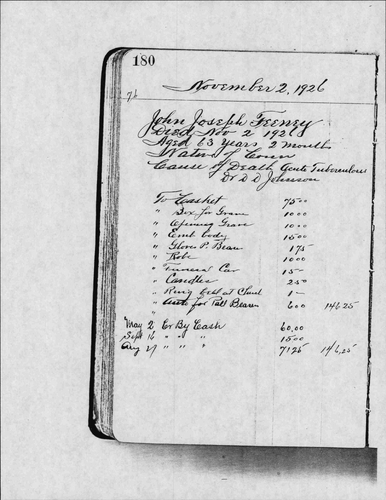 180
November 2, 1926
76
John Joseph Feeney
Died Nov 2 1926
Aged 63 years 2 months
Native of Conn
Cause of Death Acute Tuberculous
Dr D D Johnson
To Casket 75 00
" Box for Grave 10 00
" Opening Grave 10 00
" Emb body 15 00
" Gloves P. Bearers 1 75
" Robe 10 00
" Funeral Car 15 -
" Candles 2 50
" Ring bell at Church 1 -
" Auto for Pall Bearers 6 00 146 25
"
May 2 Cr By Cash 60.00
Sept 16 " " " 15 00
Aug 27 " " " 71 25 146,25